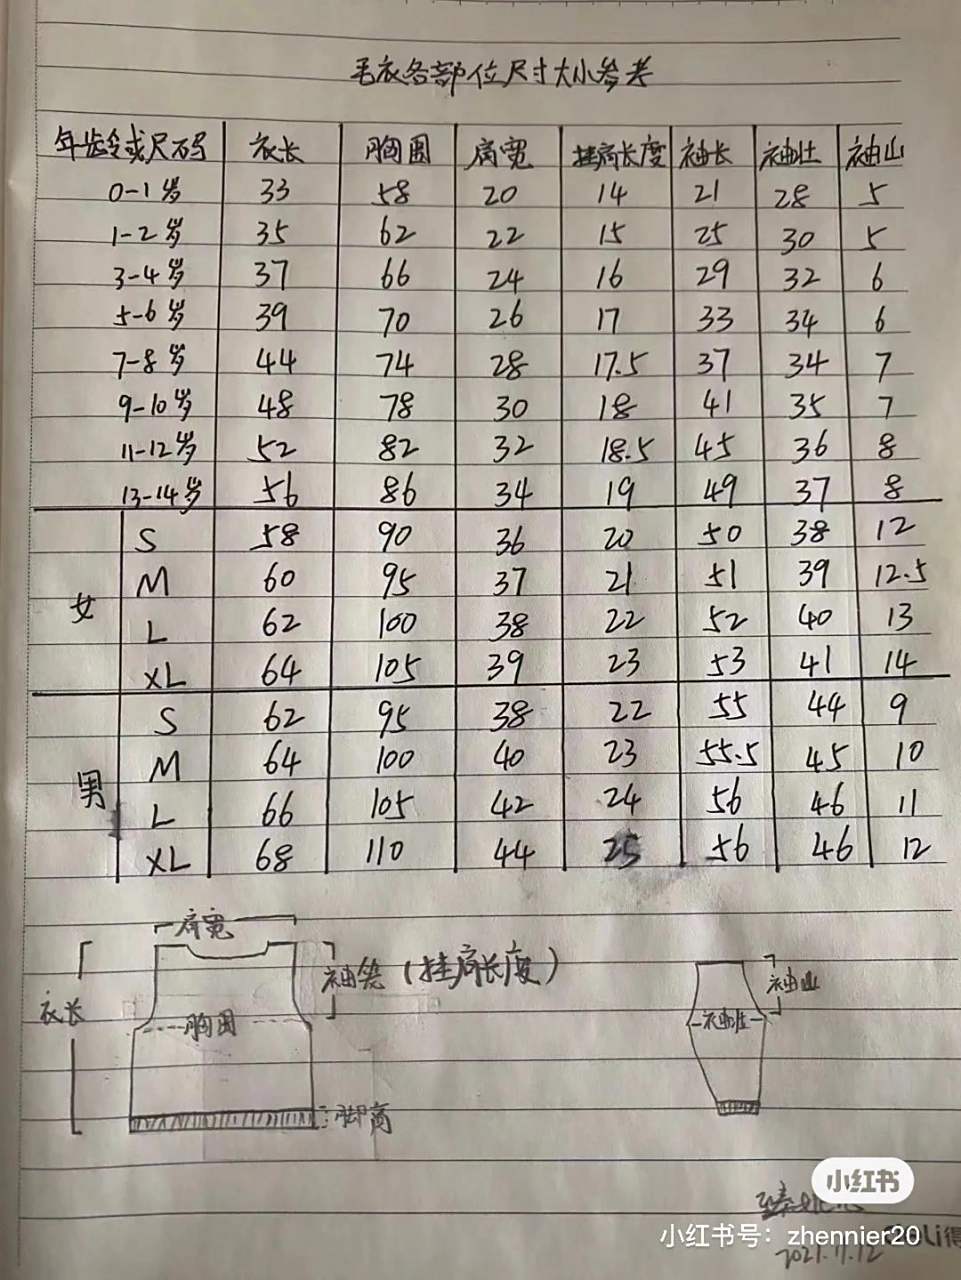 毛衣各部位尺寸大小参考
年龄或尺码 衣长 胸围 肩宽 挂肩长度 袖长 袖壮 袖山
0-1岁 33 58 20 14 21 28 5
1-2岁 35 62 22 15 25 30 5
3-4岁 37 66 24 16 29 32 6
5-6岁 39 70 26 17 33 34 6
7-8岁 44 74 28 17.5 37 34 7
9-10岁 48 78 30 18 41 35 7
11-12岁 52 82 32 18.5 45 36 8
13-14岁 56 86 34 19 49 37 8
女
S 58 90 36 20 50 38 12
M 60 95 37 21 51 39 12.5
L 62 100 38 22 52 40 13
XL 64 105 39 23 53 41 14
男
S 62 95 38 22 55 44 9
M 64 100 40 23 55.5 45 10
L 66 105 42 24 56 46 11
XL 68 110 44 25 56 46 12
肩宽
袖笼(挂肩长度)
袖山
衣长
胸围
袖壮
脚高
小红书
小红书号：zhennier20
2021.11.12